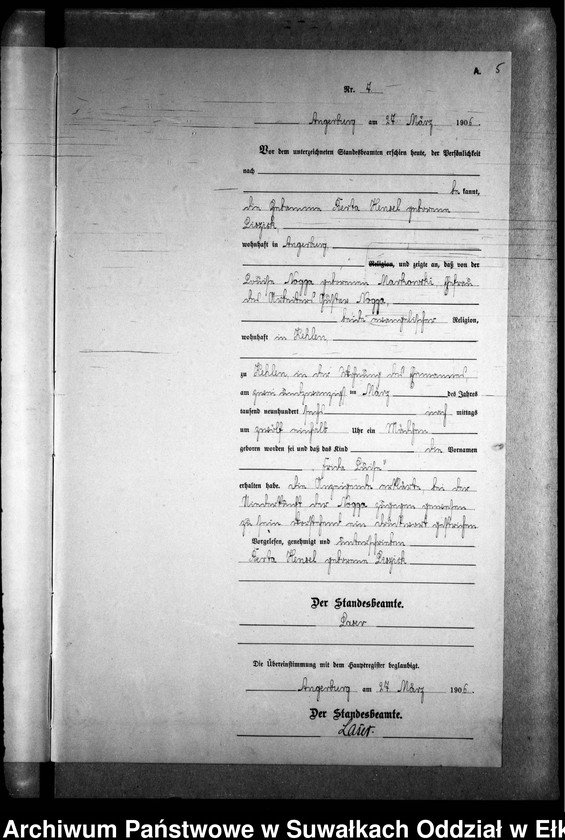 A. 5
Nr. 7
Angerburg am 27 März 1906.
Vor dem unterzeichneten Standesbeamten erschien heute, der Persönlichkeit
nach
be kannt,
die Hebamme Hensel geborene
wohnhaft in Angerburg
Religion, und zeigte an, daß von der
Louise Nogga geborenen Markowski Ehefrau
des Gustav Nogga,
beide evangelischer Religion,
wohnhaft in Kehlen,
zu Kehlen in der Wohnung des Ehemannes,
am zwei und zwanzigsten März des Jahres
tausend neunhundert sechs nach mittags
um zwölf einhalb Uhr ein Mädchen
geboren worden sei und daß das Kind die Vornamen
„Frieda Louise"
erhalten habe. Die Anzeigende erklärte, bei der
Niederkunft der Nogga zugegen gewesen
zu sein Vorstehend ein Druckwort gestrichen
Vorgelesen, genehmigt und unterschrieben
Hensel geborene
Der Standesbeamte.
Lauer
Die Übereinstimmung mit dem Hauptregister beglaubigt.
Angerburg am 27 März 1906.
Der Standesbeamte.
Lauer.
Archiwum Państwowe w Suwałkach Oddział w Ełk